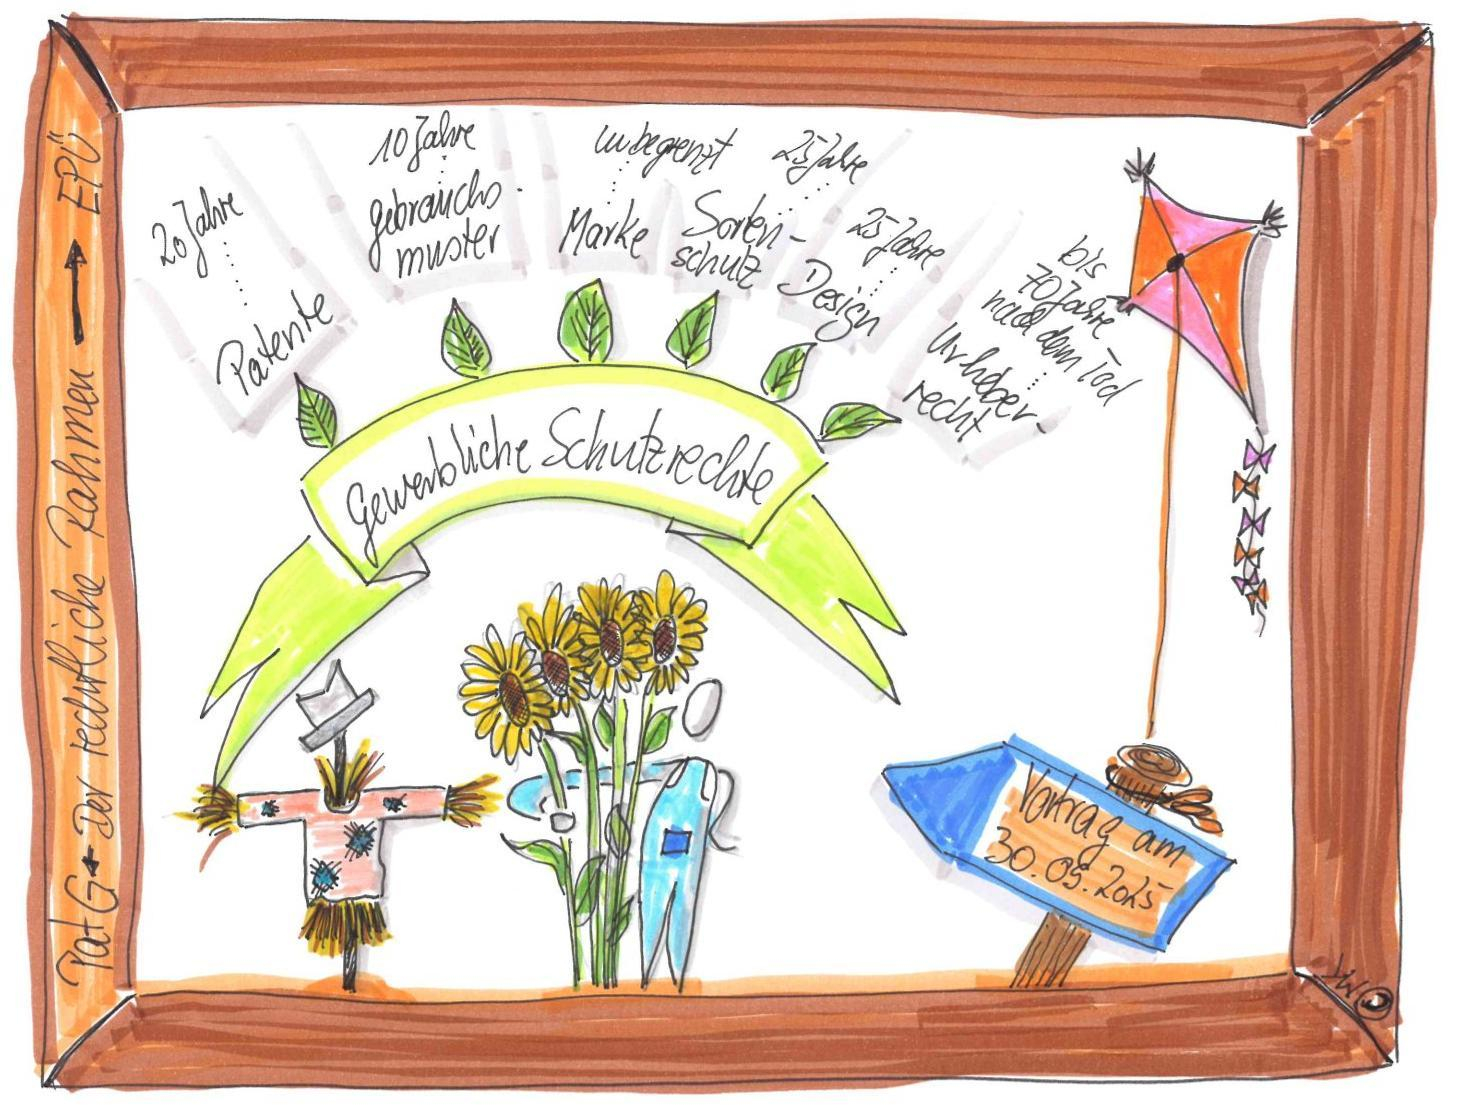 PatG ← Der rechtliche Rahmen → EPÜ
20 Jahre
Patente
10 Jahre
Gebrauchs
muster
unbegrenzt
Marke
25 Jahre
Sorten-
schutz
25 Jahre
Design
bis
70 Jahre
nach dem Tod
Urheber-
recht
Gewerbliche Schutzrechte
Vortrag am
30.09.2025